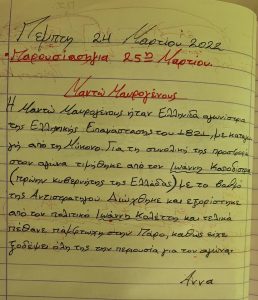 Πέμπτη 24 Μαρτίου 2022
• Παρουσίασημα 25ης Μαρτίου.
Μαντώ Μαυρογένους
Η Μαντώ Μαυρογένους ήταν Ελληνίδα αγωνίστρια
της Ελληνικής Επανάστασης του 1821, με καταγω
γή από τη Μύκονο. Για τη συνολική της προσφορά
στον αγώνα τιμήθηκε από τον Ιωάννη Καποδίστρια
(πρώτην κυβερνήτης της Ελλάδας) με το βαθμό
της Αντιστρατήγου. Διώχθηκε και εξορίστηκε
από τον πολιτικό Ιωάννη Κωλέττη και τελικά
πέθανε πάμφτωχη στην Πάρο, καθώς είχε
ξοδέψει όλη της την περιουσία για τον αγώνα.
Άννα